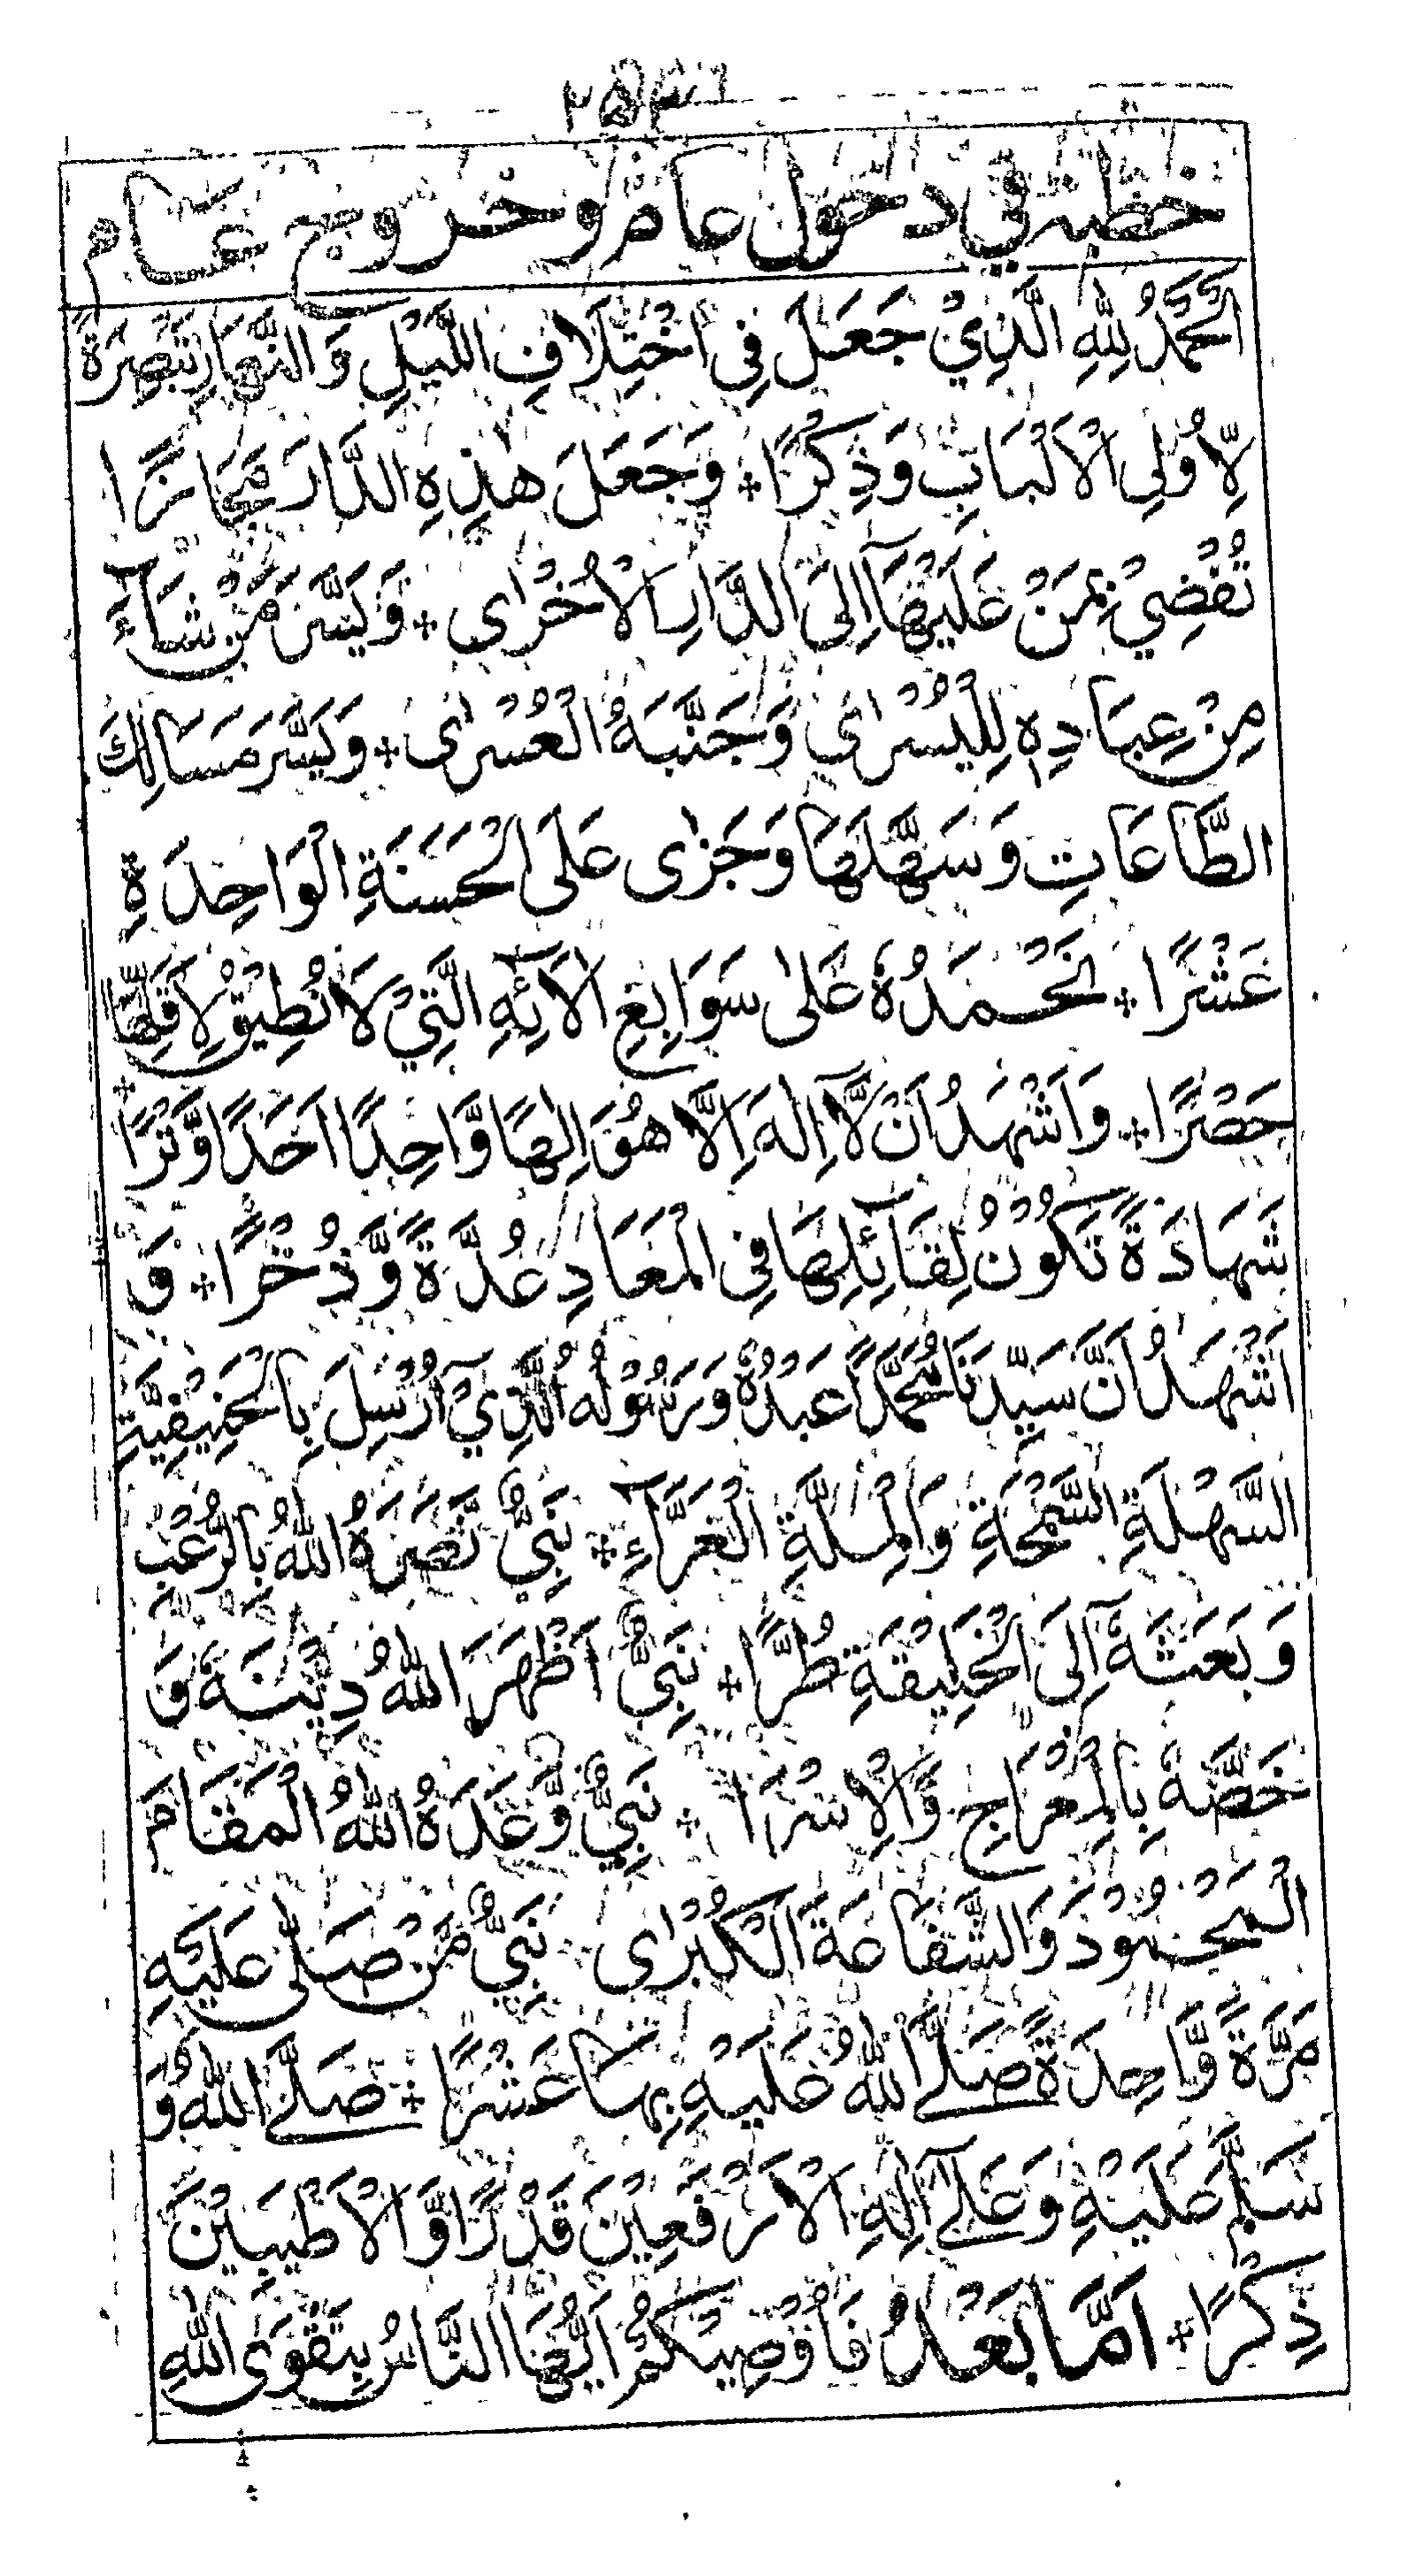 خطبة في دخول عام وخروج عام
اَلْحَمْدُ لِلّٰهِ الَّذِيْ جَعَلَ فِي اخْتِلَافِ اللَّيْلِ وَالنَّهَارِ تَبْصِرَةً
لِّاُولِى الْاَلْبَابِ وَذِكْرًا ۔ وَجَعَلَ هٰذِهِ الدَّارَ مَجَازًا
تُفْضِيْ بِمَنْ عَلَيْهَآ اِلَى الدَّارِ الْاُخْرٰى ۔ وَيَسَّرَ مَنْ شَآءَ
مِنْ عِبَادِهٖ لِلْيُسْرٰى وَجَنَّبَهُ الْعُسْرٰى ۔ وَيَسَّرَ مَسَالِكَ
الطَّاعَاتِ وَسَهَّلَهَا وَجَزٰى عَلَى الْحَسَنَةِ الْوَاحِدَةِ
عَشْرًا ۔ نَحْمَدُهٗ عَلٰى سَوَابِغِ اٰلَآئِهِ الَّتِيْ لَا نُطِيْقُ لِاَقَلِّهَا
حَصْرًا ۔ وَاَشْهَدُ اَنْ لَّآ اِلٰهَ اِلَّا هُوَ اِلٰهًا وَّاحِدًا اَحَدًا وَّتْرًا
شَهَادَةً تَكُوْنُ لِقَآئِلِهَا فِى الْمَعَادِ عُدَّةً وَّذُخْرًا ۔ وَ
اَشْهَدُ اَنَّ سَيِّدَنَا مُحَمَّدًا عَبْدُهٗ وَرَسُوْلُهُ الَّذِيْٓ اُرْسِلَ بِالْحَنِيْفِيَّةِ
السَّهْلَةِ السَّمْحَةِ وَالْمِلَّةِ الْغَرَّآءِ ۔ نَبِيٌّ نَّصَرَهُ اللّٰهُ بِالرُّعْبِ
وَبَعَثَهٗٓ اِلَى الْخَلِيْقَةِ طُرًّا ۔ نَبِيٌّ اَظْهَرَ اللّٰهُ دِيْنَهٗ وَ
خَصَّهٗ بِالْمِعْرَاجِ وَالْاِسْرَا ۔ نَبِيٌّ وَّعَدَهُ اللّٰهُ الْمَقَامَ
الْمَحْمُوْدَ وَالشَّفَاعَةَ الْكُبْرٰى ۔ نَبِيٌّ مَّنْ صَلّٰى عَلَيْهِ
مَرَّةً وَّاحِدَةً صَلَّى اللّٰهُ عَلَيْهِ بِهَا عَشْرًا ۔ صَلَّى اللّٰهُ وَ
سَلَّمَ عَلَيْهِ وَعَلٰٓى اٰلِهِ الْاَرْفَعِيْنَ قَدْرًا وَّالْاَطْيَبِيْنَ
ذِكْرًا ۔ اَمَّا بَعْدُ فَاُوْصِيْكُمْ اَيُّهَا النَّاسُ بِتَقْوَى اللّٰهِ